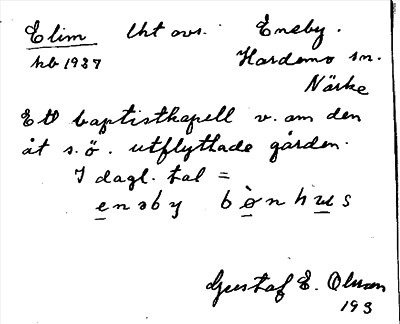 Elim lht avs. Eneby.
hb 1937 Hardemo sn.
Närke
Ett baptistkapell v. om den
åt s.ö. utflyttade gården.
I dagl. tal =
enəby bönhus
Gustaf E. Olsson
193